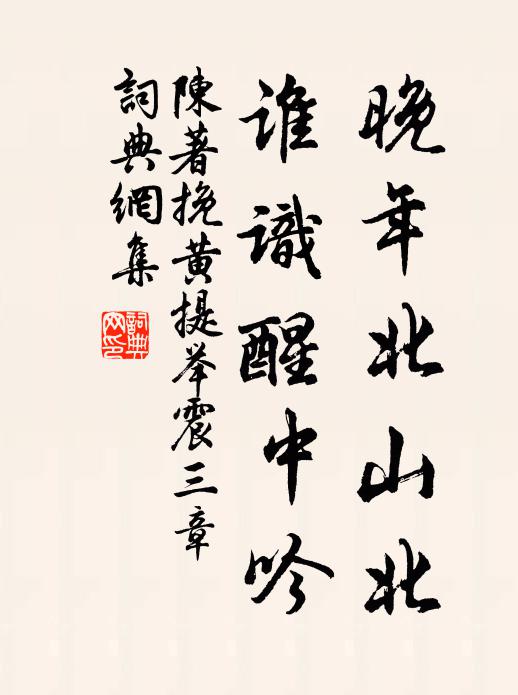 晚年北山北
誰識醒中吟
陳著挽黃提举震三章
詞典網集
詞典網印